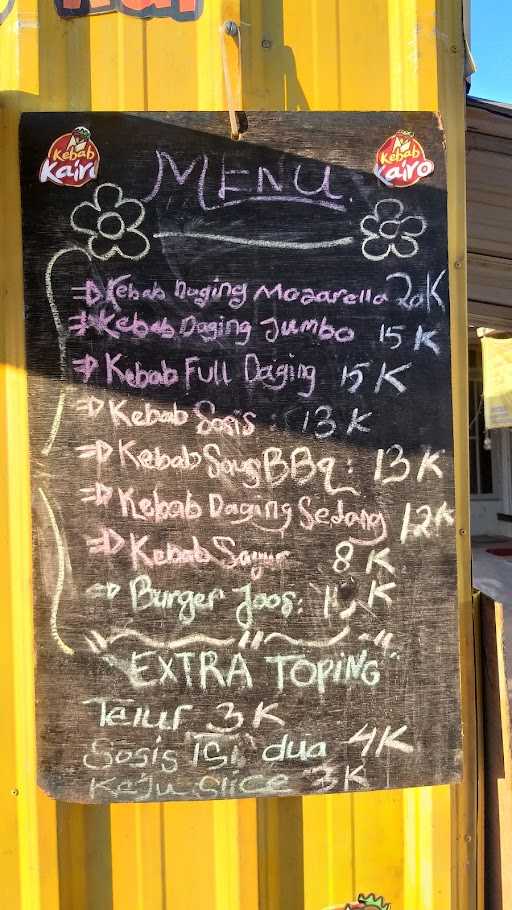 Kebab
Kairo
Kebab
Kairo
MENU
Kebab Daging Mozarella 20K
Kebab Daging Jumbo 15K
Kebab Full Daging 15K
Kebab Sosis : 13K
Kebab Saus BBq : 13K
Kebab Daging Sedang 12K
Kebab Sayur 8K
Burger Joos: K
"EXTRA TOPING"
Telur 3K
Sosis isi dua 4K
Keju Slice 3K